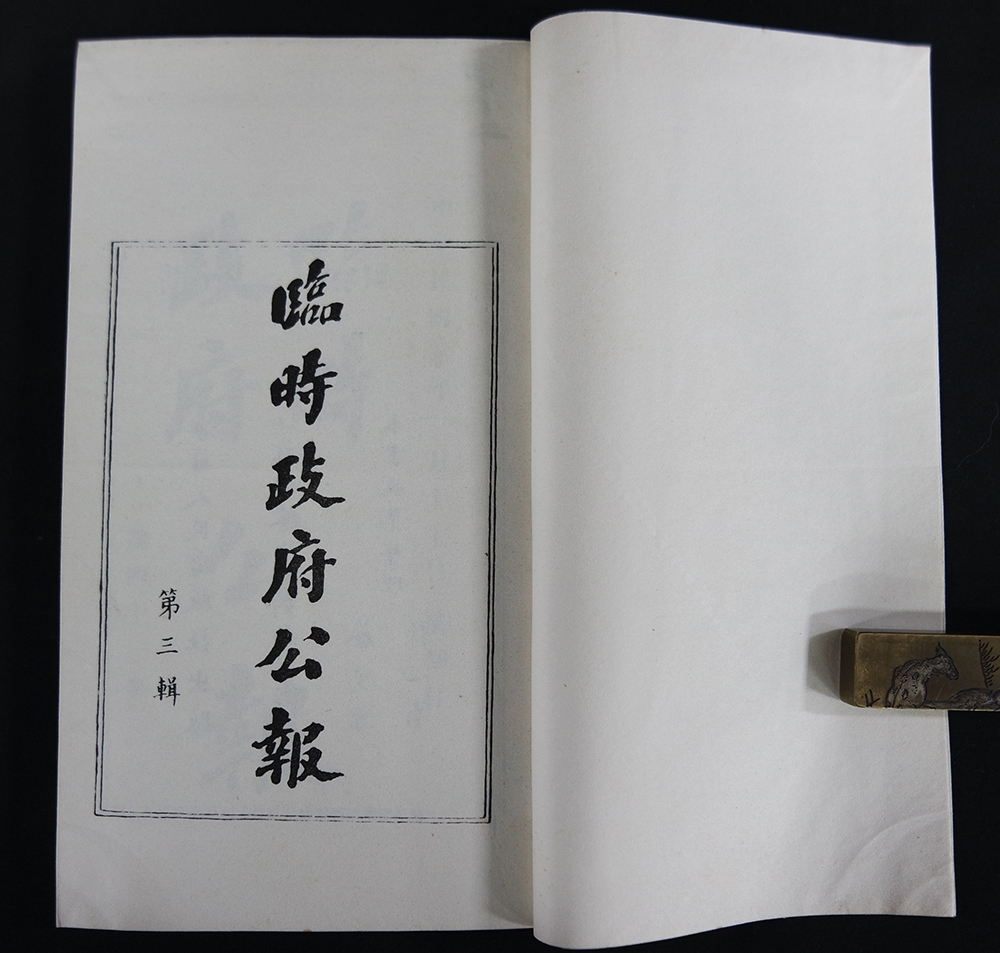 臨時政府公報
第三輯